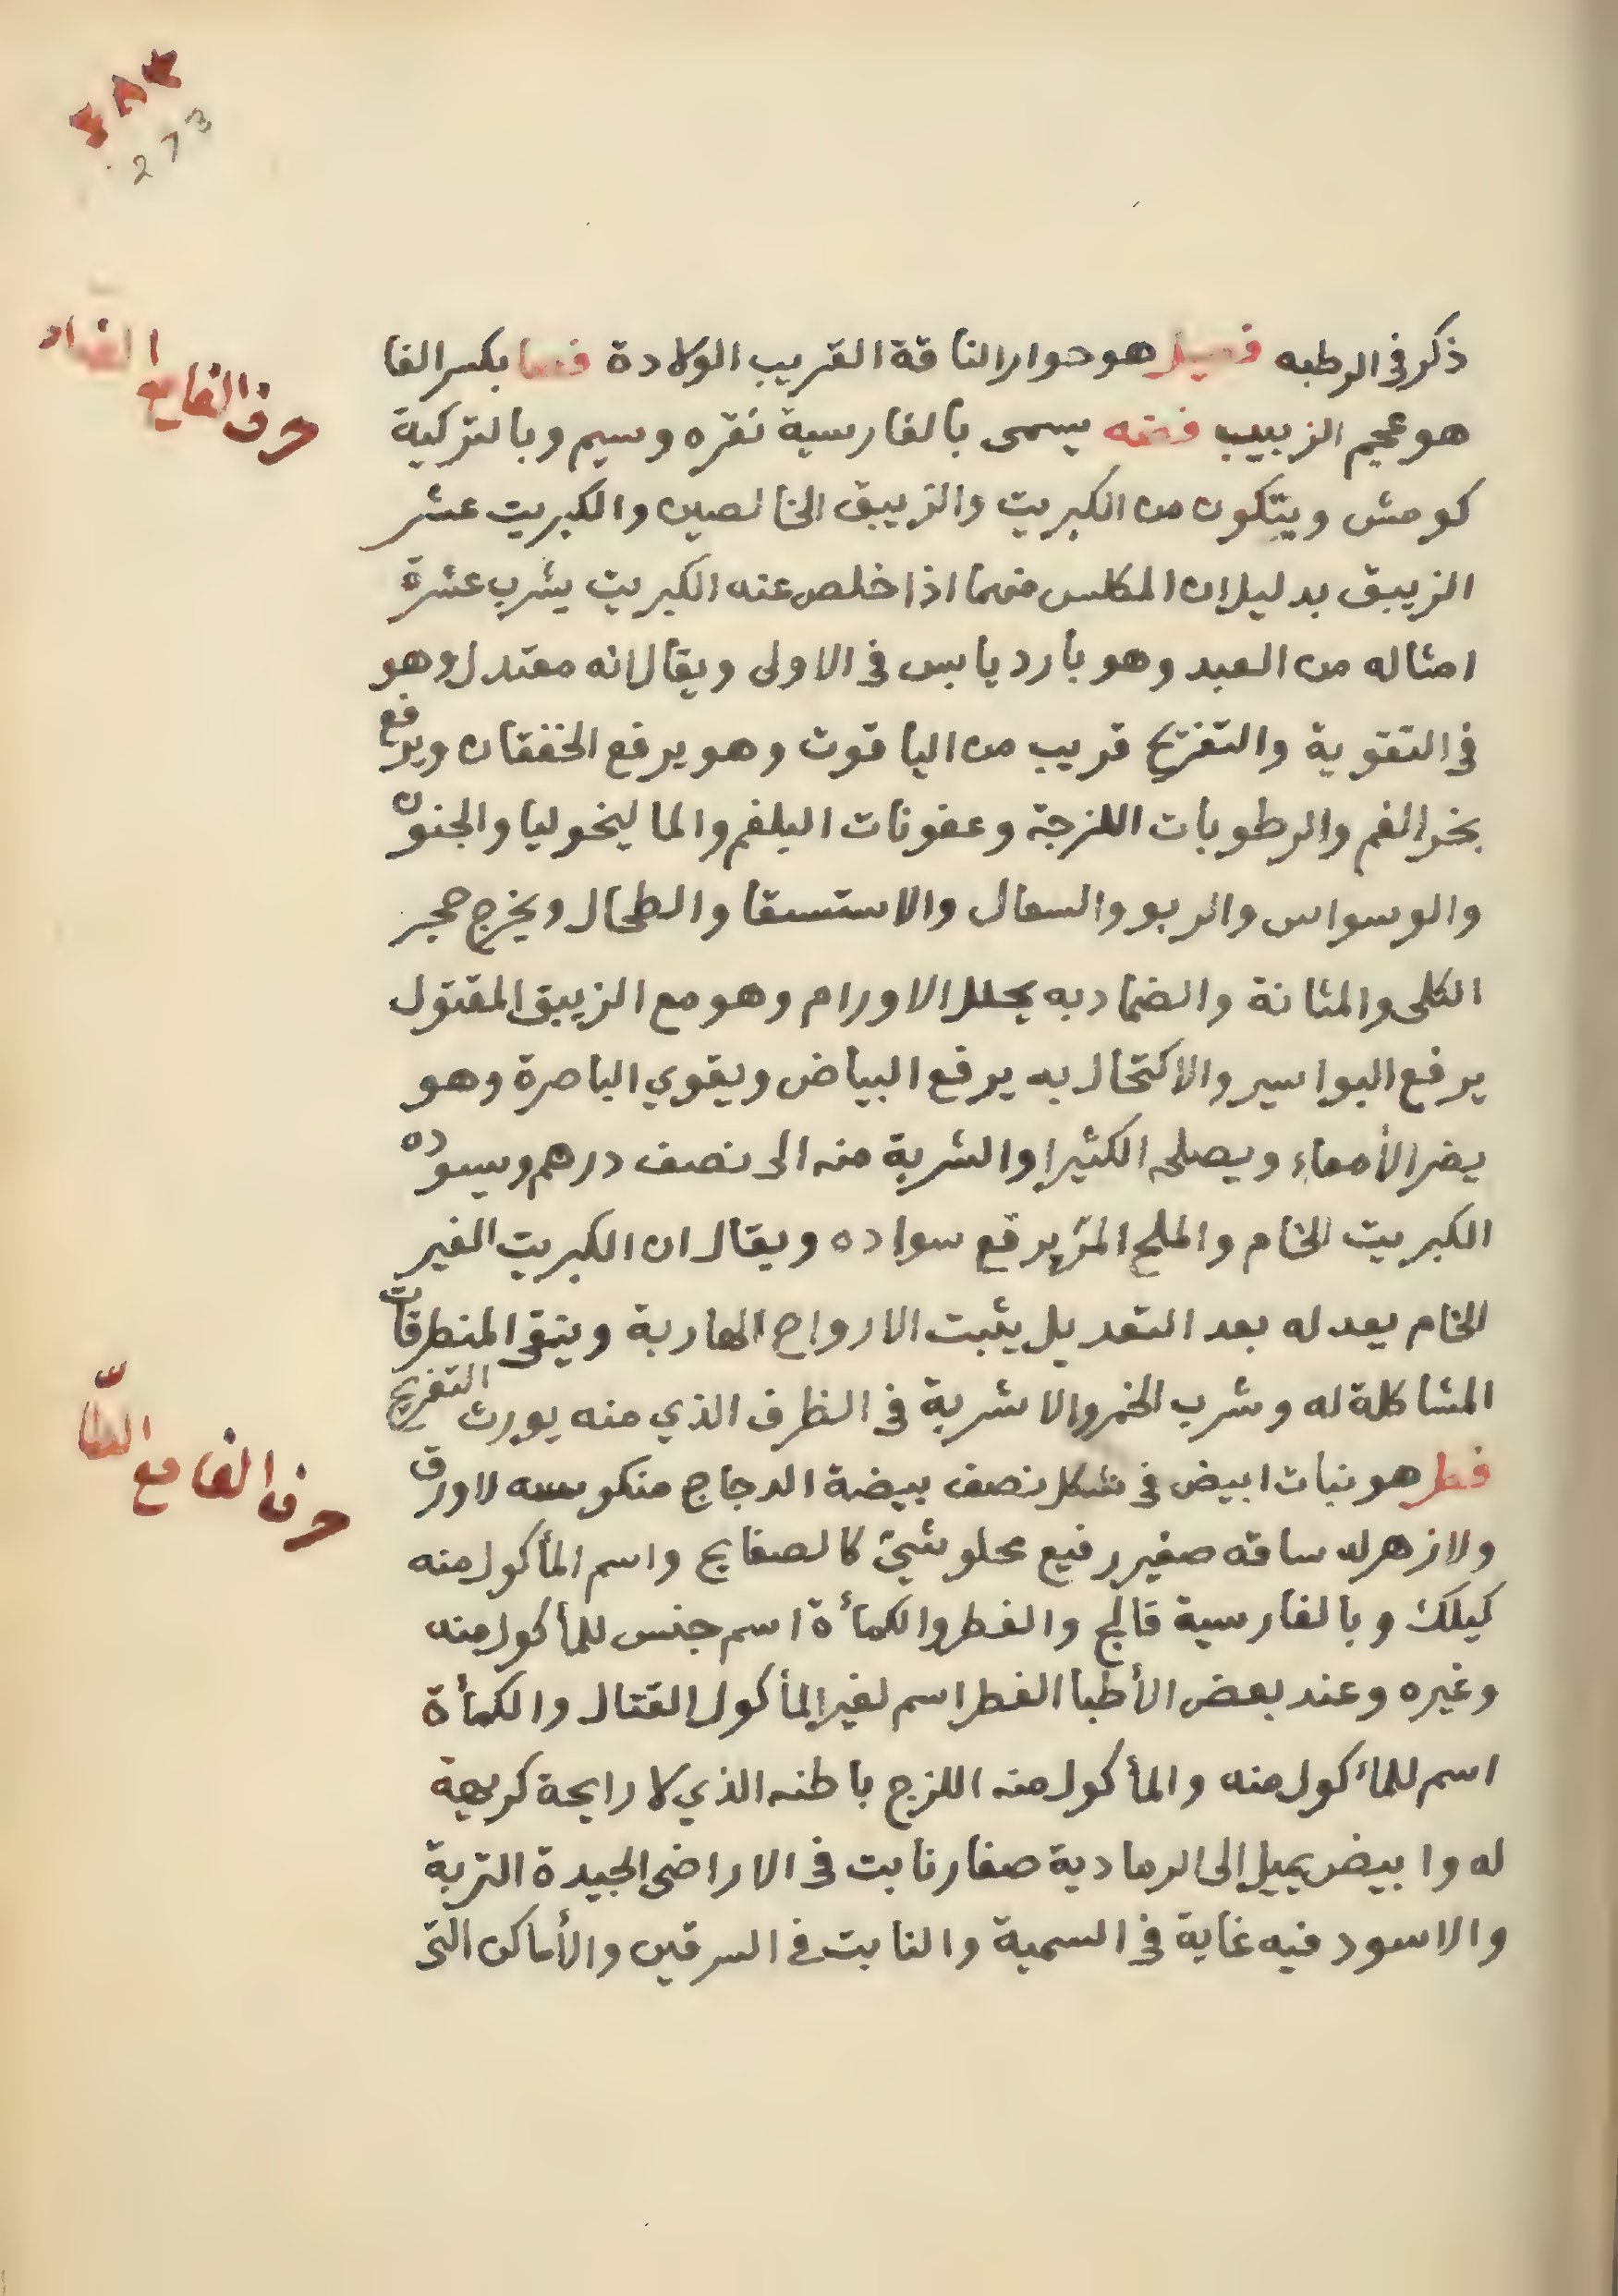 273
ذكر في الرطبه فصيل هو حوار الناقة القريب الولادة فصا بكسر الفا
هو عجم الزبيب فضه يسمى بالفارسية نقره وسيم وبالتركية
كومش ويتكون من الكبريت والزيبق الخالصين والكبريت عشر
الزيبق بدليل ان المكلس منهما اذا خلص عنه الكبريت يشرب عشرة
امثاله من العبد وهو بارد يابس في الاولى ويقال انه معتدل وهو
في التقوية والتفريح قريب من الياقوت وهو يرفع الخفقان ويرفع
بخر الفم والرطوبات اللزجة وعفونات البلغم والماليخوليا والجنون
والوسواس والربو والسعال والاستسقا والطحال ويخرج حجر
الكلى والمثانة والضماد به يحلل الاورام وهو مع الزيبق المقتول
يرفع البواسير والاكتحال به يرفع البياض ويقوي الباصرة وهو
يضر الأمعاء ويصلحه الكثيرا والشربة منه الى نصف درهم ويسوده
الكبريت الخام والملح المرّ يرفع سواده ويقال ان الكبريت الغير
الخام يعدله بعد التعديل يثبت الارواح الهاربة وينقي المنطرقات
المشاكلة له وشرب الخمر والاشربة في الظرف الذي منه يورث التفريح
حرف الفا مع الطّا
فطر هو نبات ابيض في شكل نصف بيضة الدجاج منكوسه لا ورق
ولا زهر له ساقه صغير رفيع مملو شيئ كالصفايح واسم المأكول منه
كيلك وبالفارسية قالج والفطر والكمأة اسم جنس للمأكول منه
وغيره وعند بعض الأطبا الفطر اسم لغير المأكول القتال والكمأة
اسم للمأكول منه والمأكول منه اللزج باطنه الذي لا رايحة كريهة
له وابيض يميل إلى الرمادية صغار نابت في الاراضى الجيدة التربة
والاسود فيه غاية في السمية والنابت في السرقين والأماكن التى